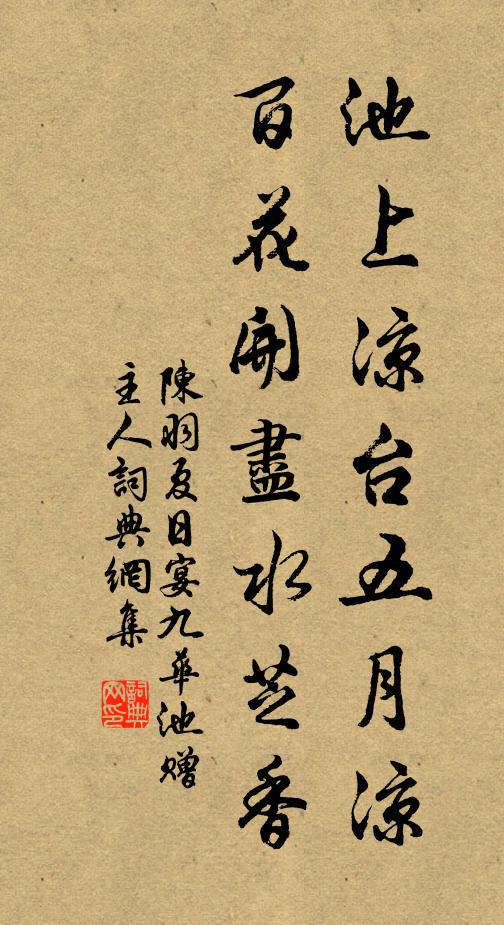 池上凉台五月凉
百花開盡水芝香
陳羽夏日宴九華池贈
主人詞典網集
詞典网印